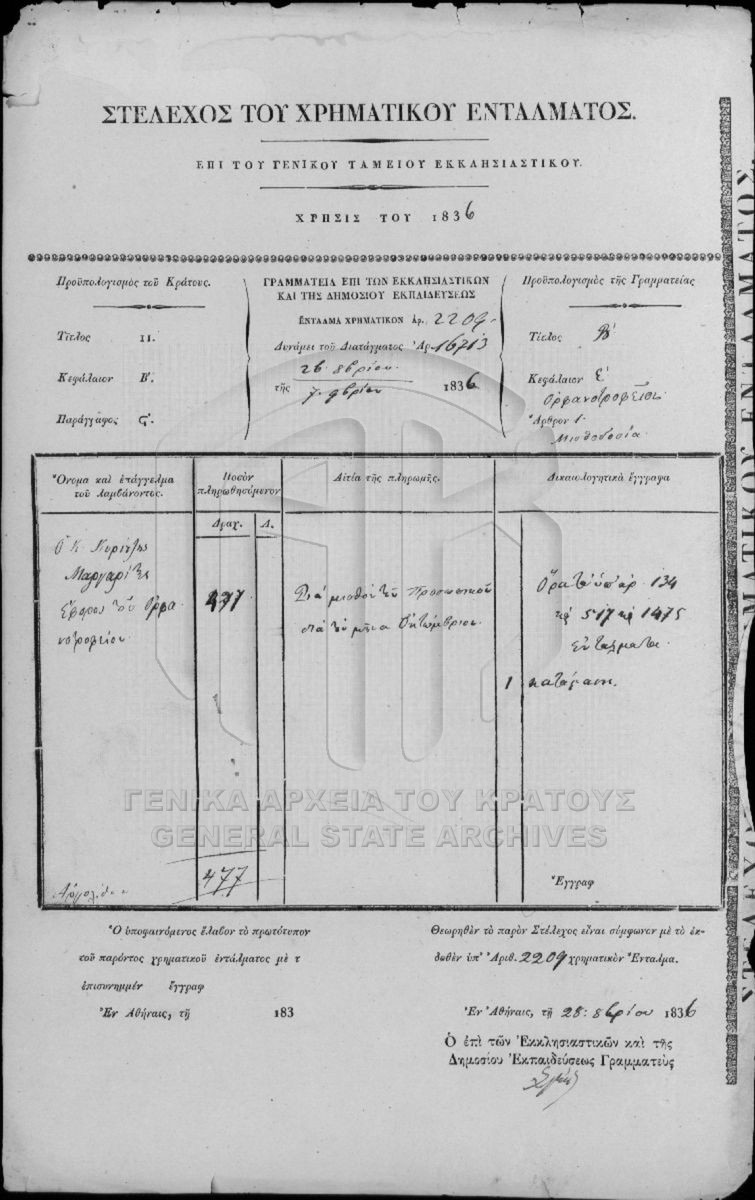 ΣΤΕΛΕΧΟΣ ΤΟΥ ΧΡΗΜΑΤΙΚΟΥ ΕΝΤΑΛΜΑΤΟΣ.
ΕΠΙ ΤΟΥ ΓΕΝΙΚΟΥ ΤΑΜΕΙΟΥ ΕΚΚΛΗΣΙΑΣΤΙΚΟΥ.
ΧΡΗΣΙΣ ΤΟΥ 1836
Προϋπολογισμὸς τοῦ Κράτους.
Τίτλος II.
Κεφάλαιον Β'.
Παράγγαφος ς'.
ΓΡΑΜΜΑΤΕΙΑ ΕΠΙ ΤΩΝ ΕΚΚΛΗΣΙΑΣΤΙΚΩΝ
ΚΑΙ ΤΗΣ ΔΗΜΟΣΙΟΥ ΕΚΠΑΙΔΕΥΣΕΩΣ
ΕΝΤΑΛΜΑ ΧΡΗΜΑΤΙΚΟΝ Αρ. 2209.
Δυνάμει τοῦ Διατάγματος Ἀρ. 16713
26 8βρίου
τῆς 7. 9βρίου 1836
Προϋπολογισμὸς τῆς Γραμματείας
Τίτλος Β'
Κεφάλαιον Ε'
Ὀρφανοτροφεῖον
Ἄρθρον 1.
Μισθοδοσία
Ὄνομα καὶ ἐπάγγελμα
τοῦ λαμβάνοντος.
Ποσὸν
πληρωθησόμενον
Δραχ. Λ.
Αἰτία τῆς πληρωμῆς.
Δικαιολογητικὰ ἔγγραφα
Ὁ Κ.
Μαργαρίτης
Ἔφορος τοῦ Ὀρφα
νοτροφείου
477
Διὰ μισθοὺς τοῦ Προσωπικοῦ
διὰ τὸν μῆνα Ὀκτώμβριον.
Ὅρα τὰ ὑπ' ἀρ. 134
κ 517 κ 1475
ἐντάλματα.
1 κατάστασι.
477
Ἔγγραφ
ΓΕΝΙΚΑ ΑΡΧΕΙΑ ΤΟΥ ΚΡΑΤΟΥΣ
GENERAL STATE ARCHIVES
Ὁ ὑποφαινόμενος ἔλαβον τὸ πρωτότυπον
τοῦ παρόντος χρηματικοῦ ἐντάλματος μὲ τ
ἐπισυνημμέν ἔγγραφ
Ἐν Ἀθήναις, τῇ 183
Θεωρηθὲν τὸ παρὸν Στέλεχος εἶναι σύμφωνον μὲ τὸ ἐκ-
δοθὲν ὑπ' Ἀριθ. 2209 χρηματικὸν Ἔνταλμα.
Ἐν Ἀθήναις, τῇ 28: 8βρίου 1836
Ὁ ἐπὶ τῶν Ἐκκλησιαστικῶν καὶ τῆς
Δημοσίου Ἐκπαιδεύσεως Γραμματεὺς